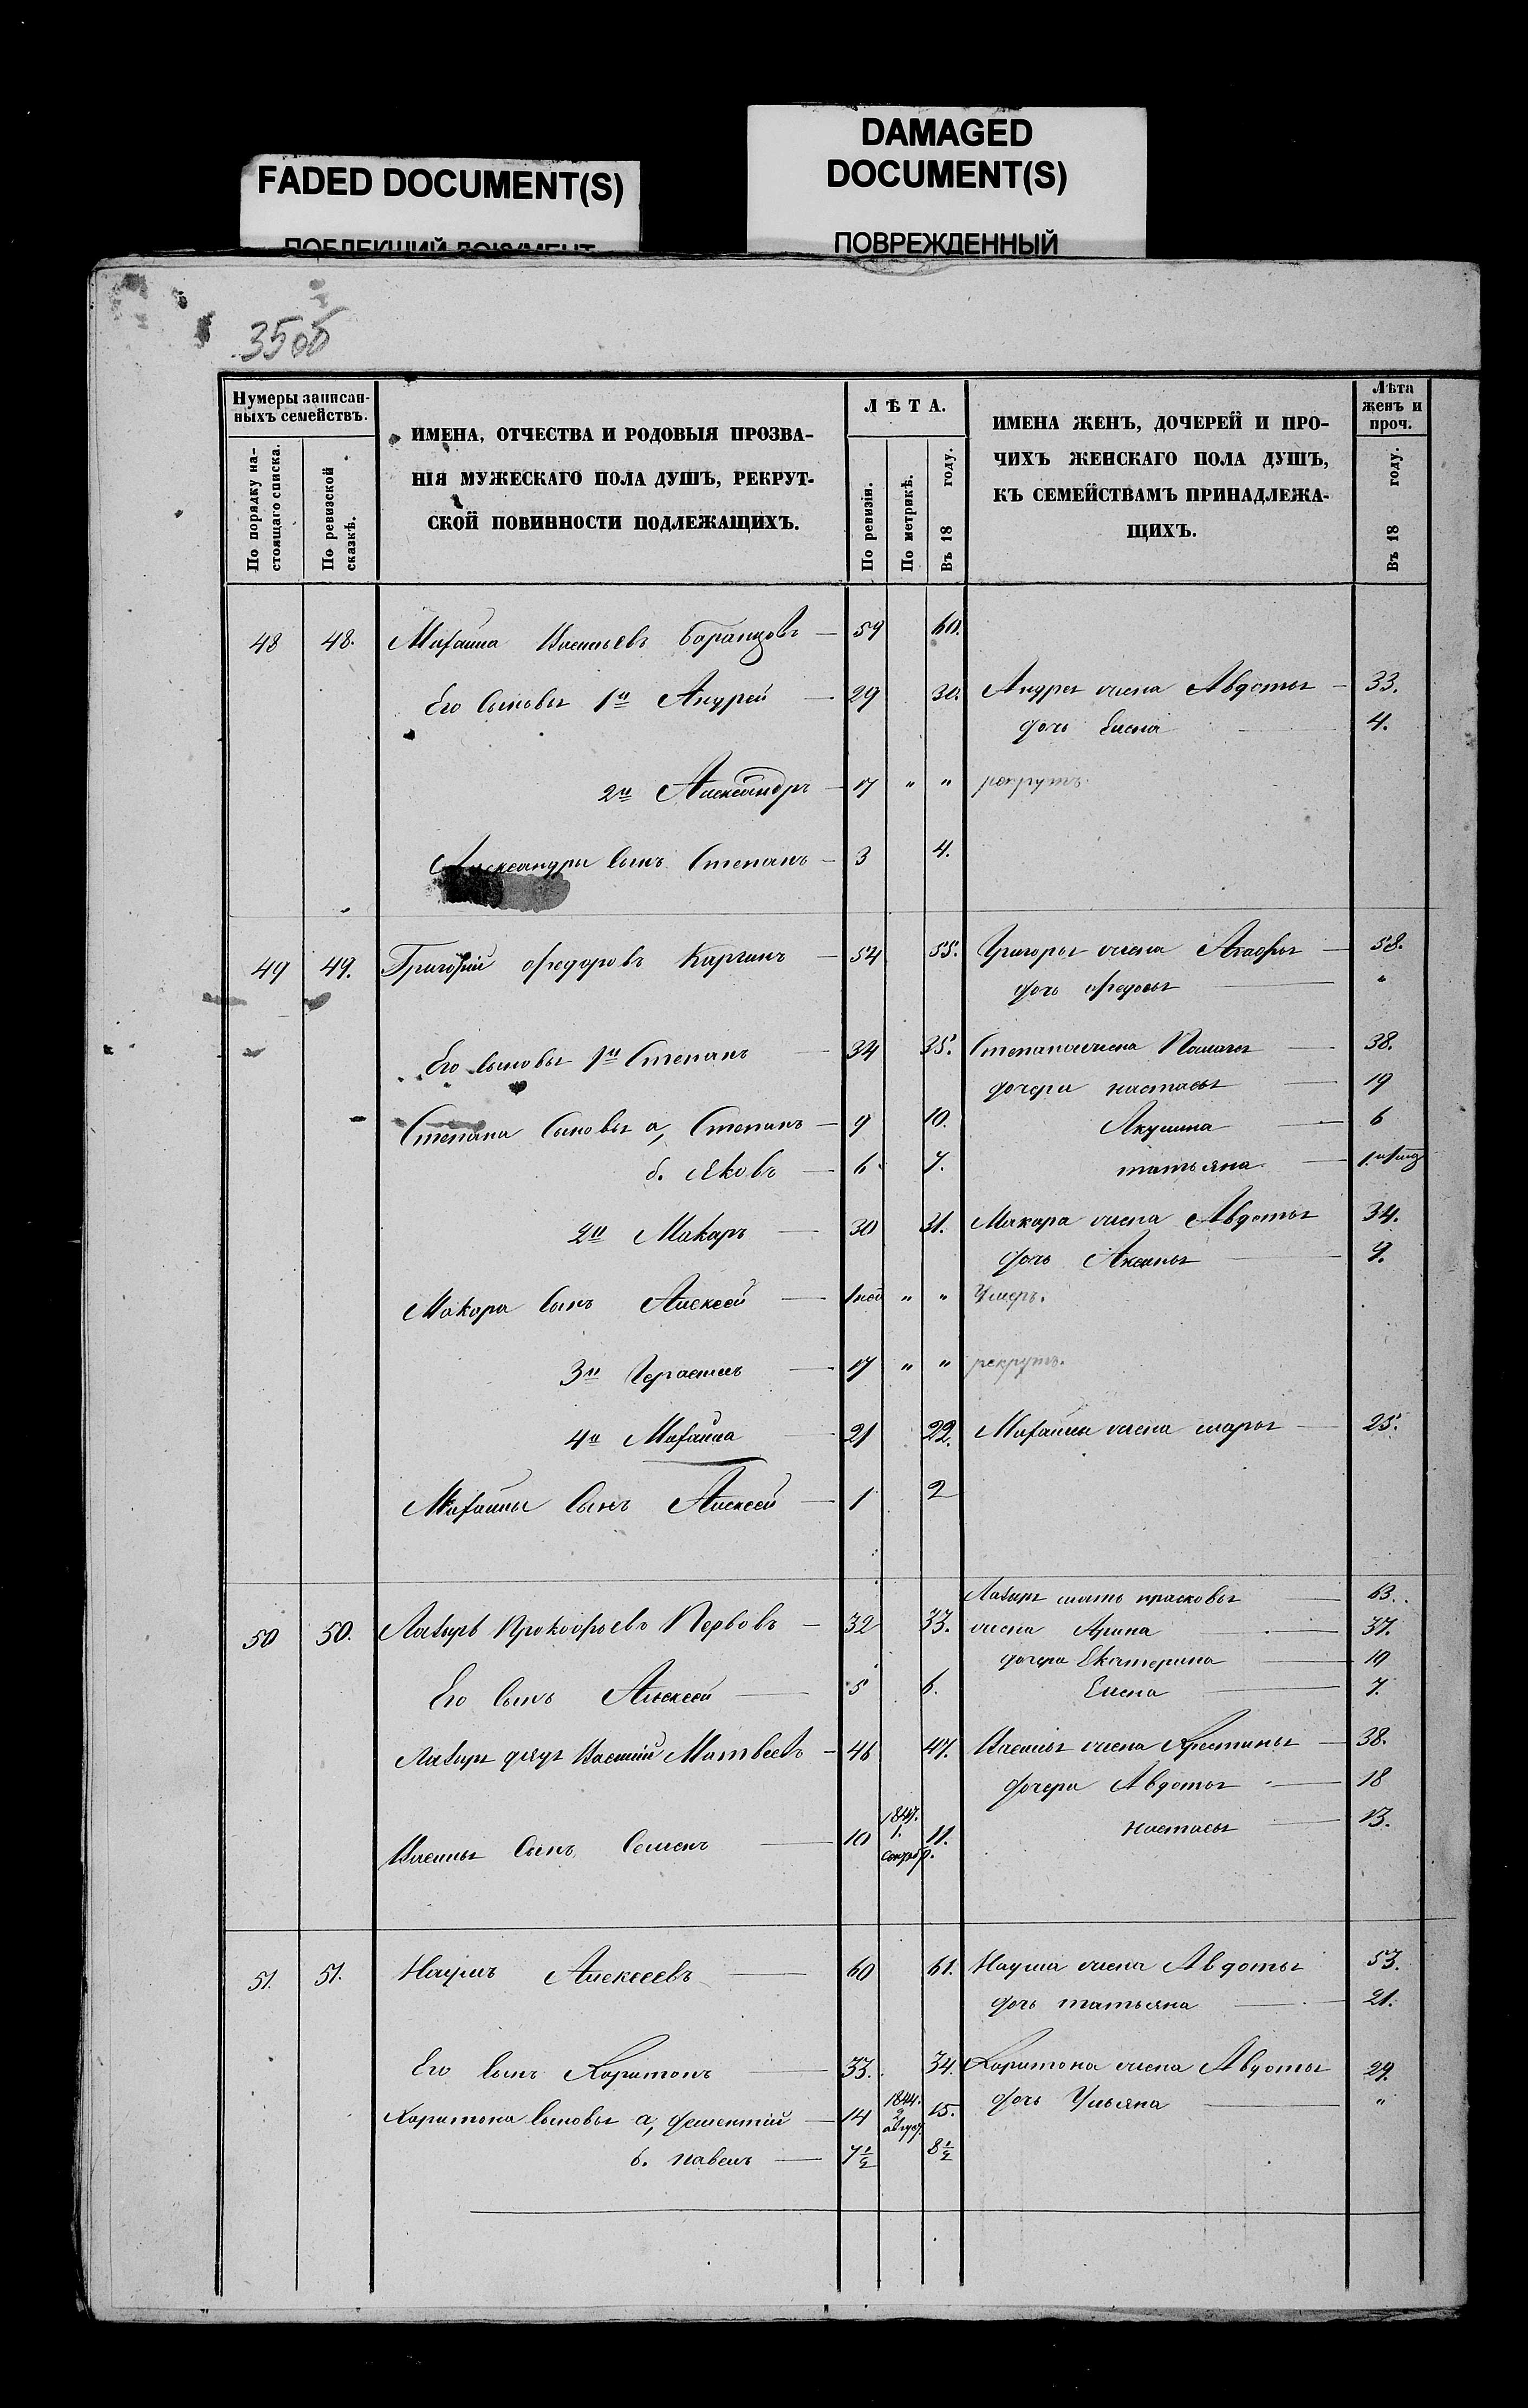 FADED DOCUMENT(S)
ПОБЛЕКШИЙ ДОКУМЕНТ
DAMAGED
DOCUMENT(S)
ПОВРЕЖДЕННЫЙ
350б
Нумеры записан-
ныхъ семействъ.
По порядку на-
стоящаго списка.
По ревизской
сказкѣ.
ИМЕНА, ОТЧЕСТВА И РОДОВЫЯ ПРОЗВА-
НІЯ МУЖЕСКАГО ПОЛА ДУШЪ, РЕКРУТ-
СКОЙ ПОВИННОСТИ ПОДЛЕЖАЩИХЪ.
ЛѢТА.
По ревизіи.
По метрикѣ.
Въ 18 году.
ИМЕНА ЖЕНЪ, ДОЧЕРЕЙ И ПРО-
ЧИХЪ ЖЕНСКАГО ПОЛА ДУШЪ,
КЪ СЕМЕЙСТВАМЪ ПРИНАДЛЕЖА-
ЩИХЪ.
Лѣта
женъ и
проч.
Въ 18 году.
48 48. Михаила Васильевъ Баранцовъ — 59 60.
Его сыновья 1й Андрей — 29 30. Андрея жена Авдотья — 33.
дочь Елена 4.
2й Александръ — 17 " " рекрутъ.
Александры сынъ Степанъ — 3 4.
49 49. Григорій Федоровъ — 54 55. Григорья жена Агафья — 58.
дочь Федосья — "
Его сыновья 1й Степанъ — 34 35. Степана жена — 38.
дочери настасья — 19
Степана сыновья а, Степанъ — 9 10. Акулина — 6
б. Яковъ — 6 7. татьяна — 1.
2й Макаръ — 30 31. Макара жена Авдотья 34.
дочь Аксинья — 9.
Макара сынъ Алексей — " " Умеръ.
3й Герасимъ — 17 " " рекрутъ.
4й Михаила — 21 22. Михаилы жена марья — 25.
Михаилы сынъ Алексей — 1 2
Лазыря мать прасковья — 63.
50 50. Лазырь Прокофьевъ Первовъ — 32 33. жена Арина — 37.
дочери Екатерина — 19
Его сынъ Алексей — 5 6. Елена — 7.
Лазыря дядя Василій Матвеевъ — 46 47. Василья жена Крестинья — 38.
дочери Авдотья — 18
Василья сынъ Семенъ — 10 1847. 1. 11. настасья — 13.
51. 51. Наумъ Алексеевъ — 60 61. Наума жена Авдотья 53.
дочь татьяна — 21.
Его сынъ Харитонъ — 33. 34. Харитона жена Авдотья 29.
Харитона сыновья а, дементій — 14 1844. 2 август. 15. дочь Ульяна — "
б. павелъ — 7½ 8½